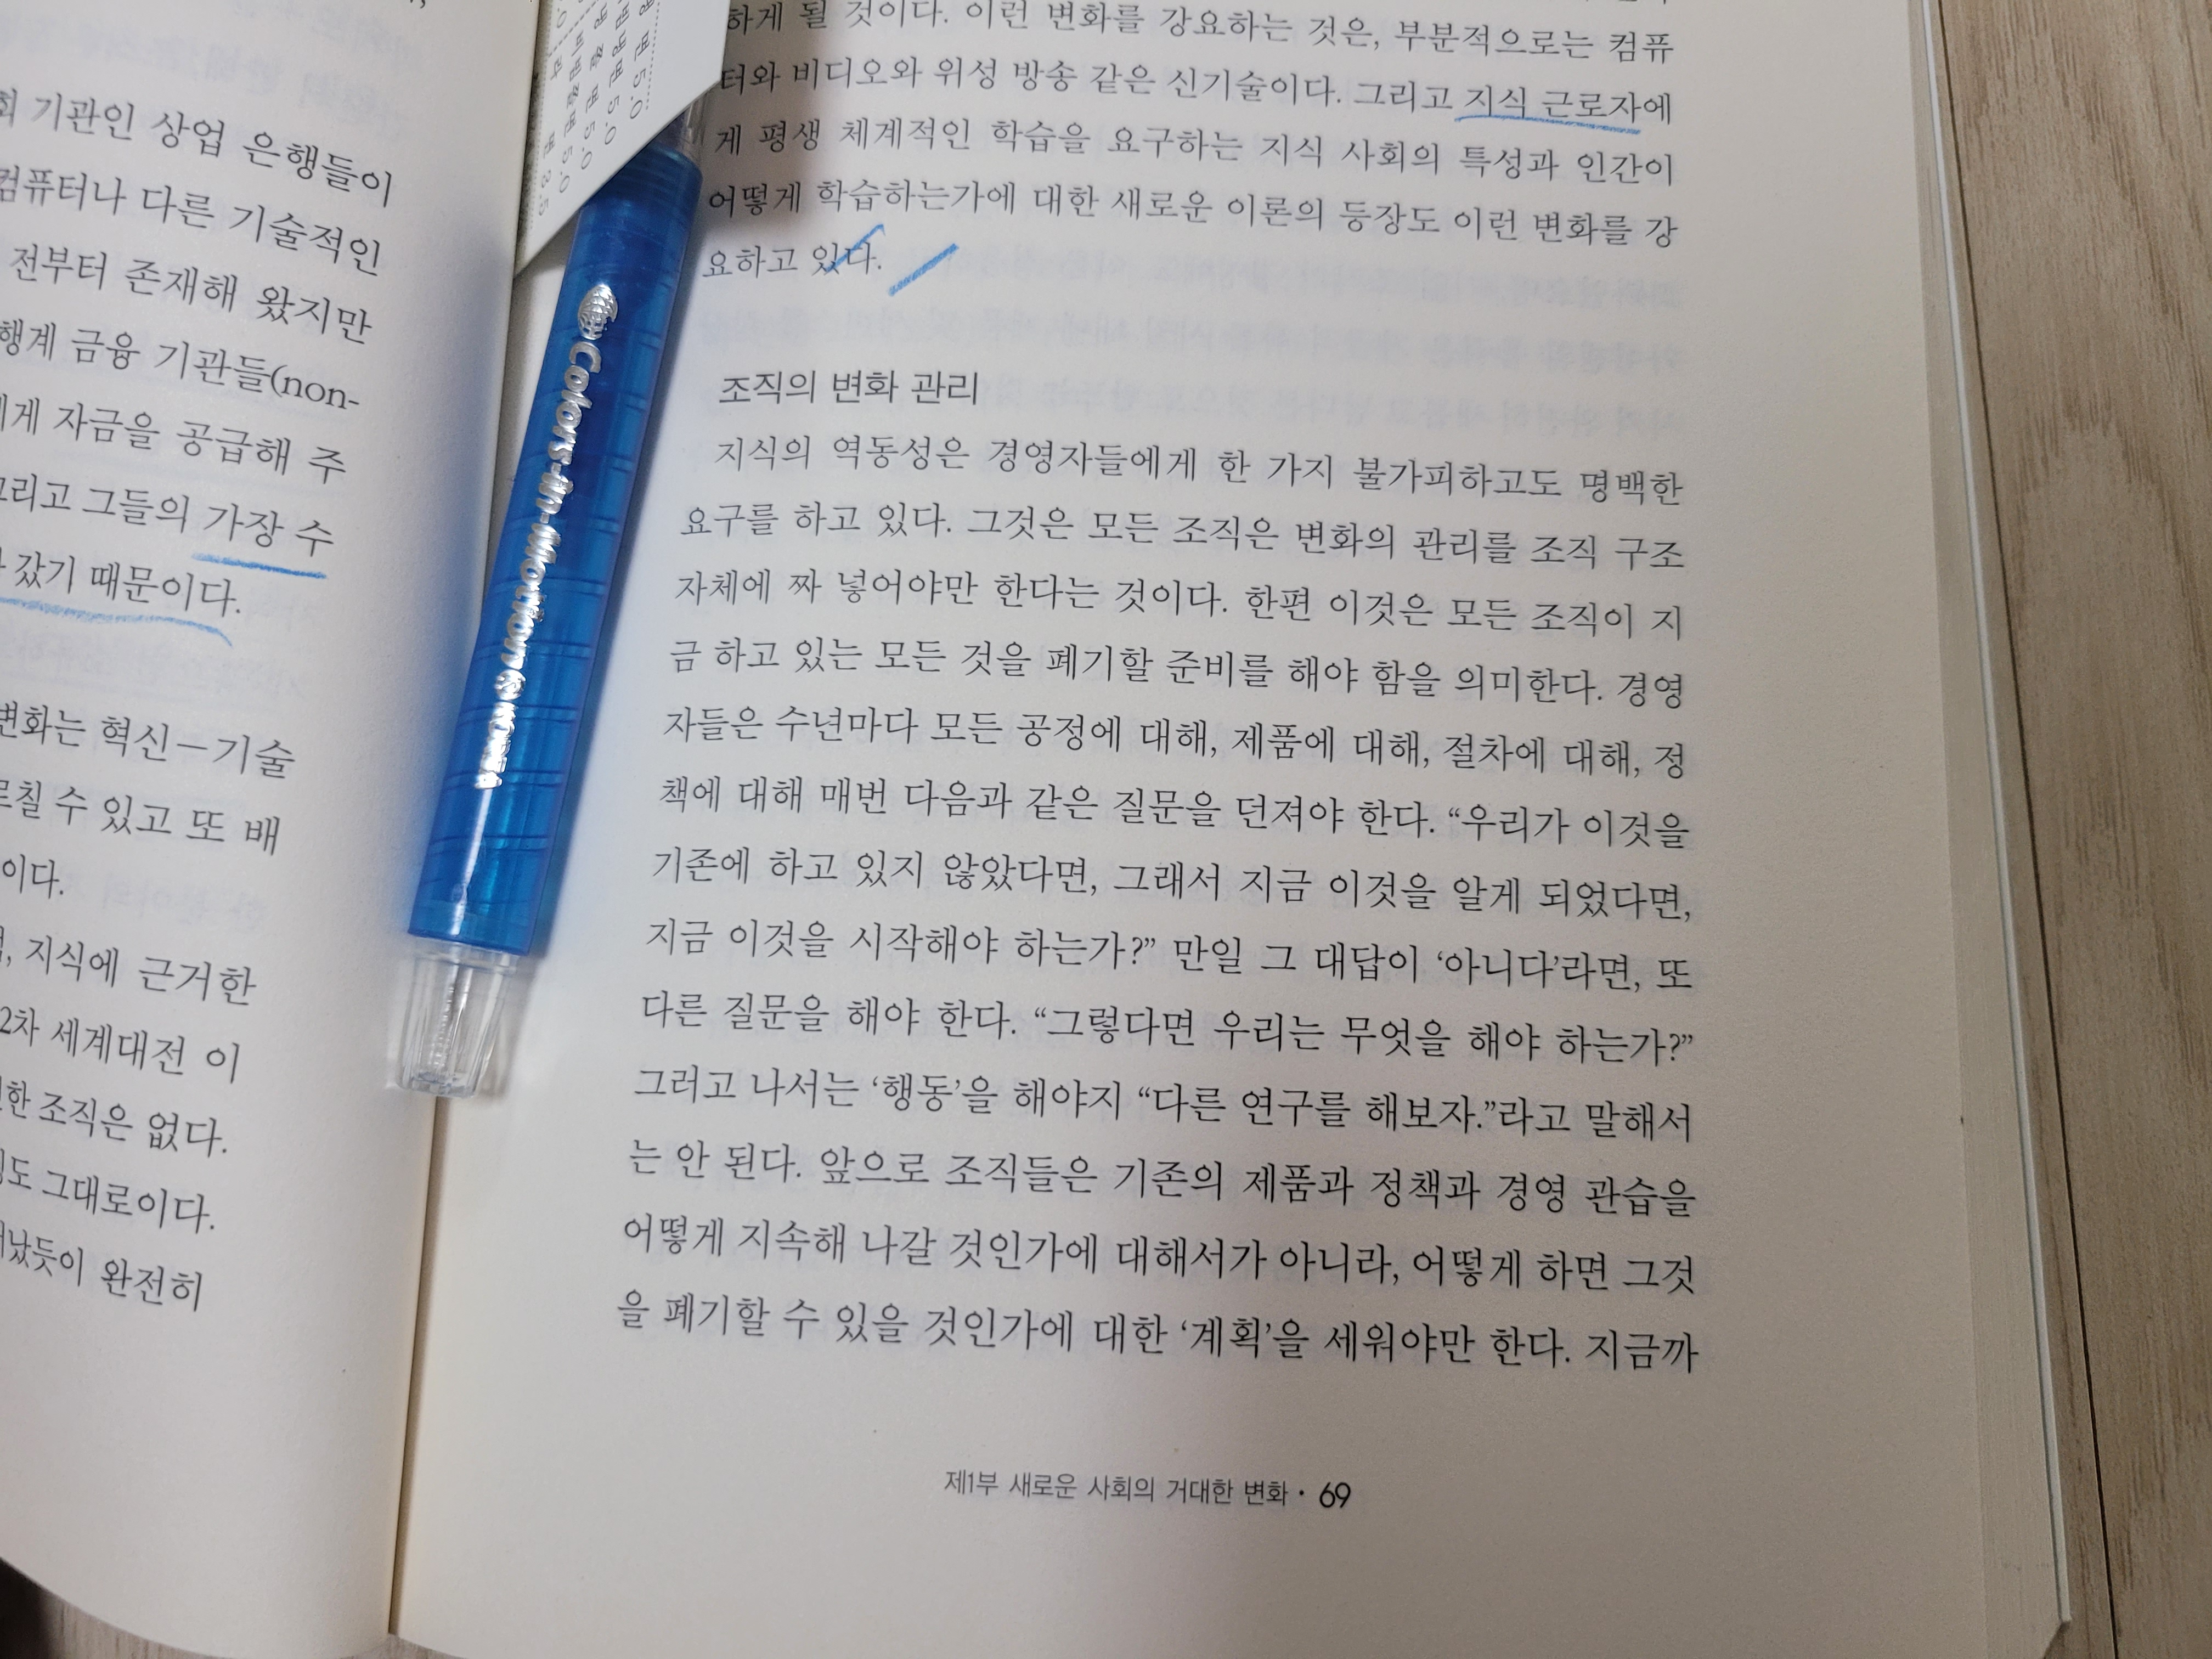 기관인 상업 은행들이
컴퓨터나 다른 기술적인
전부터 존재해 왔지만
행계 금융 기관들(non-
에게 자금을 공급해 주
그리고 그들의 가장 수
갔기 때문이다.
변화는 혁신—기술
르칠 수 있고 또 배
이다.
지식에 근거한
2차 세계대전 이
한 조직은 없다.
도 그대로이다.
났듯이 완전히
Colors-in-Motion
하게 될 것이다. 이런 변화를 강요하는 것은, 부분적으로는 컴퓨
터와 비디오와 위성 방송 같은 신기술이다. 그리고 지식 근로자에
게 평생 체계적인 학습을 요구하는 지식 사회의 특성과 인간이
어떻게 학습하는가에 대한 새로운 이론의 등장도 이런 변화를 강
요하고 있다.
조직의 변화 관리
지식의 역동성은 경영자들에게 한 가지 불가피하고도 명백한
요구를 하고 있다. 그것은 모든 조직은 변화의 관리를 조직 구조
자체에 짜 넣어야만 한다는 것이다. 한편 이것은 모든 조직이 지
금 하고 있는 모든 것을 폐기할 준비를 해야 함을 의미한다. 경영
자들은 수년마다 모든 공정에 대해, 제품에 대해, 절차에 대해, 정
책에 대해 매번 다음과 같은 질문을 던져야 한다. “우리가 이것을
기존에 하고 있지 않았다면, 그래서 지금 이것을 알게 되었다면,
지금 이것을 시작해야 하는가?” 만일 그 대답이 ‘아니다’라면, 또
다른 질문을 해야 한다. “그렇다면 우리는 무엇을 해야 하는가?”
그러고 나서는 ‘행동’을 해야지 “다른 연구를 해보자.”라고 말해서
는 안 된다. 앞으로 조직들은 기존의 제품과 정책과 경영 관습을
어떻게 지속해 나갈 것인가에 대해서가 아니라, 어떻게 하면 그것
을 폐기할 수 있을 것인가에 대한 ‘계획’을 세워야만 한다. 지금까
제1부 새로운 사회의 거대한 변화 • 69